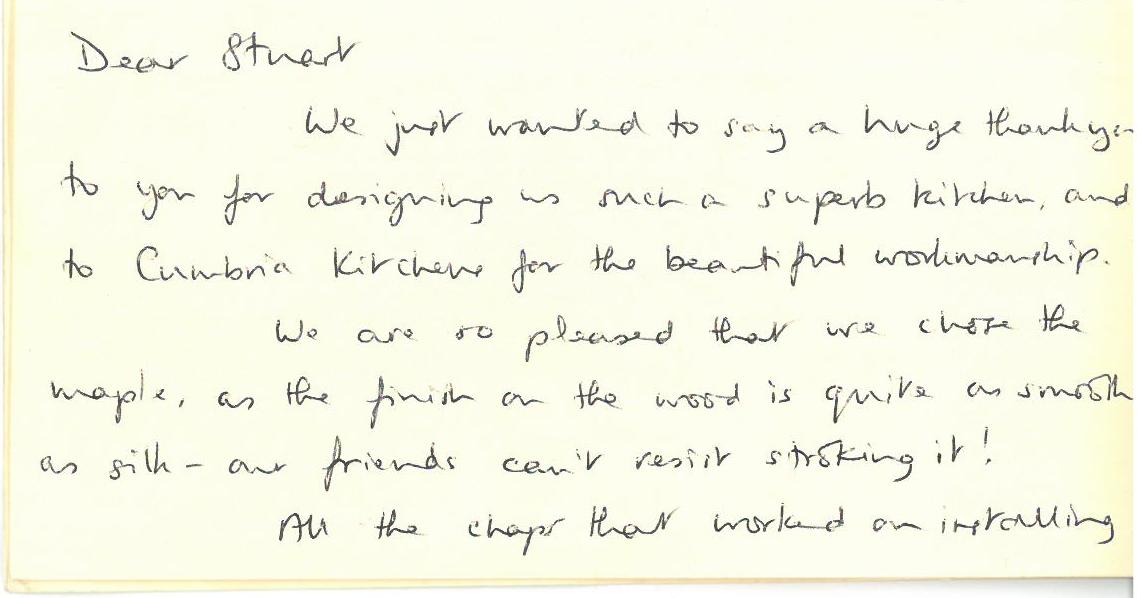 Dear Stuart
We just wanted to say a huge thankyou
to you for designing us such a superb kitchen, and
to Cumbria Kitchens for the beautiful workmanship.
We are so pleased that we chose the
maple, as the finish on the wood is quite as smooth
as silk - our friends can't resist stroking it!
All the chaps that worked on installing